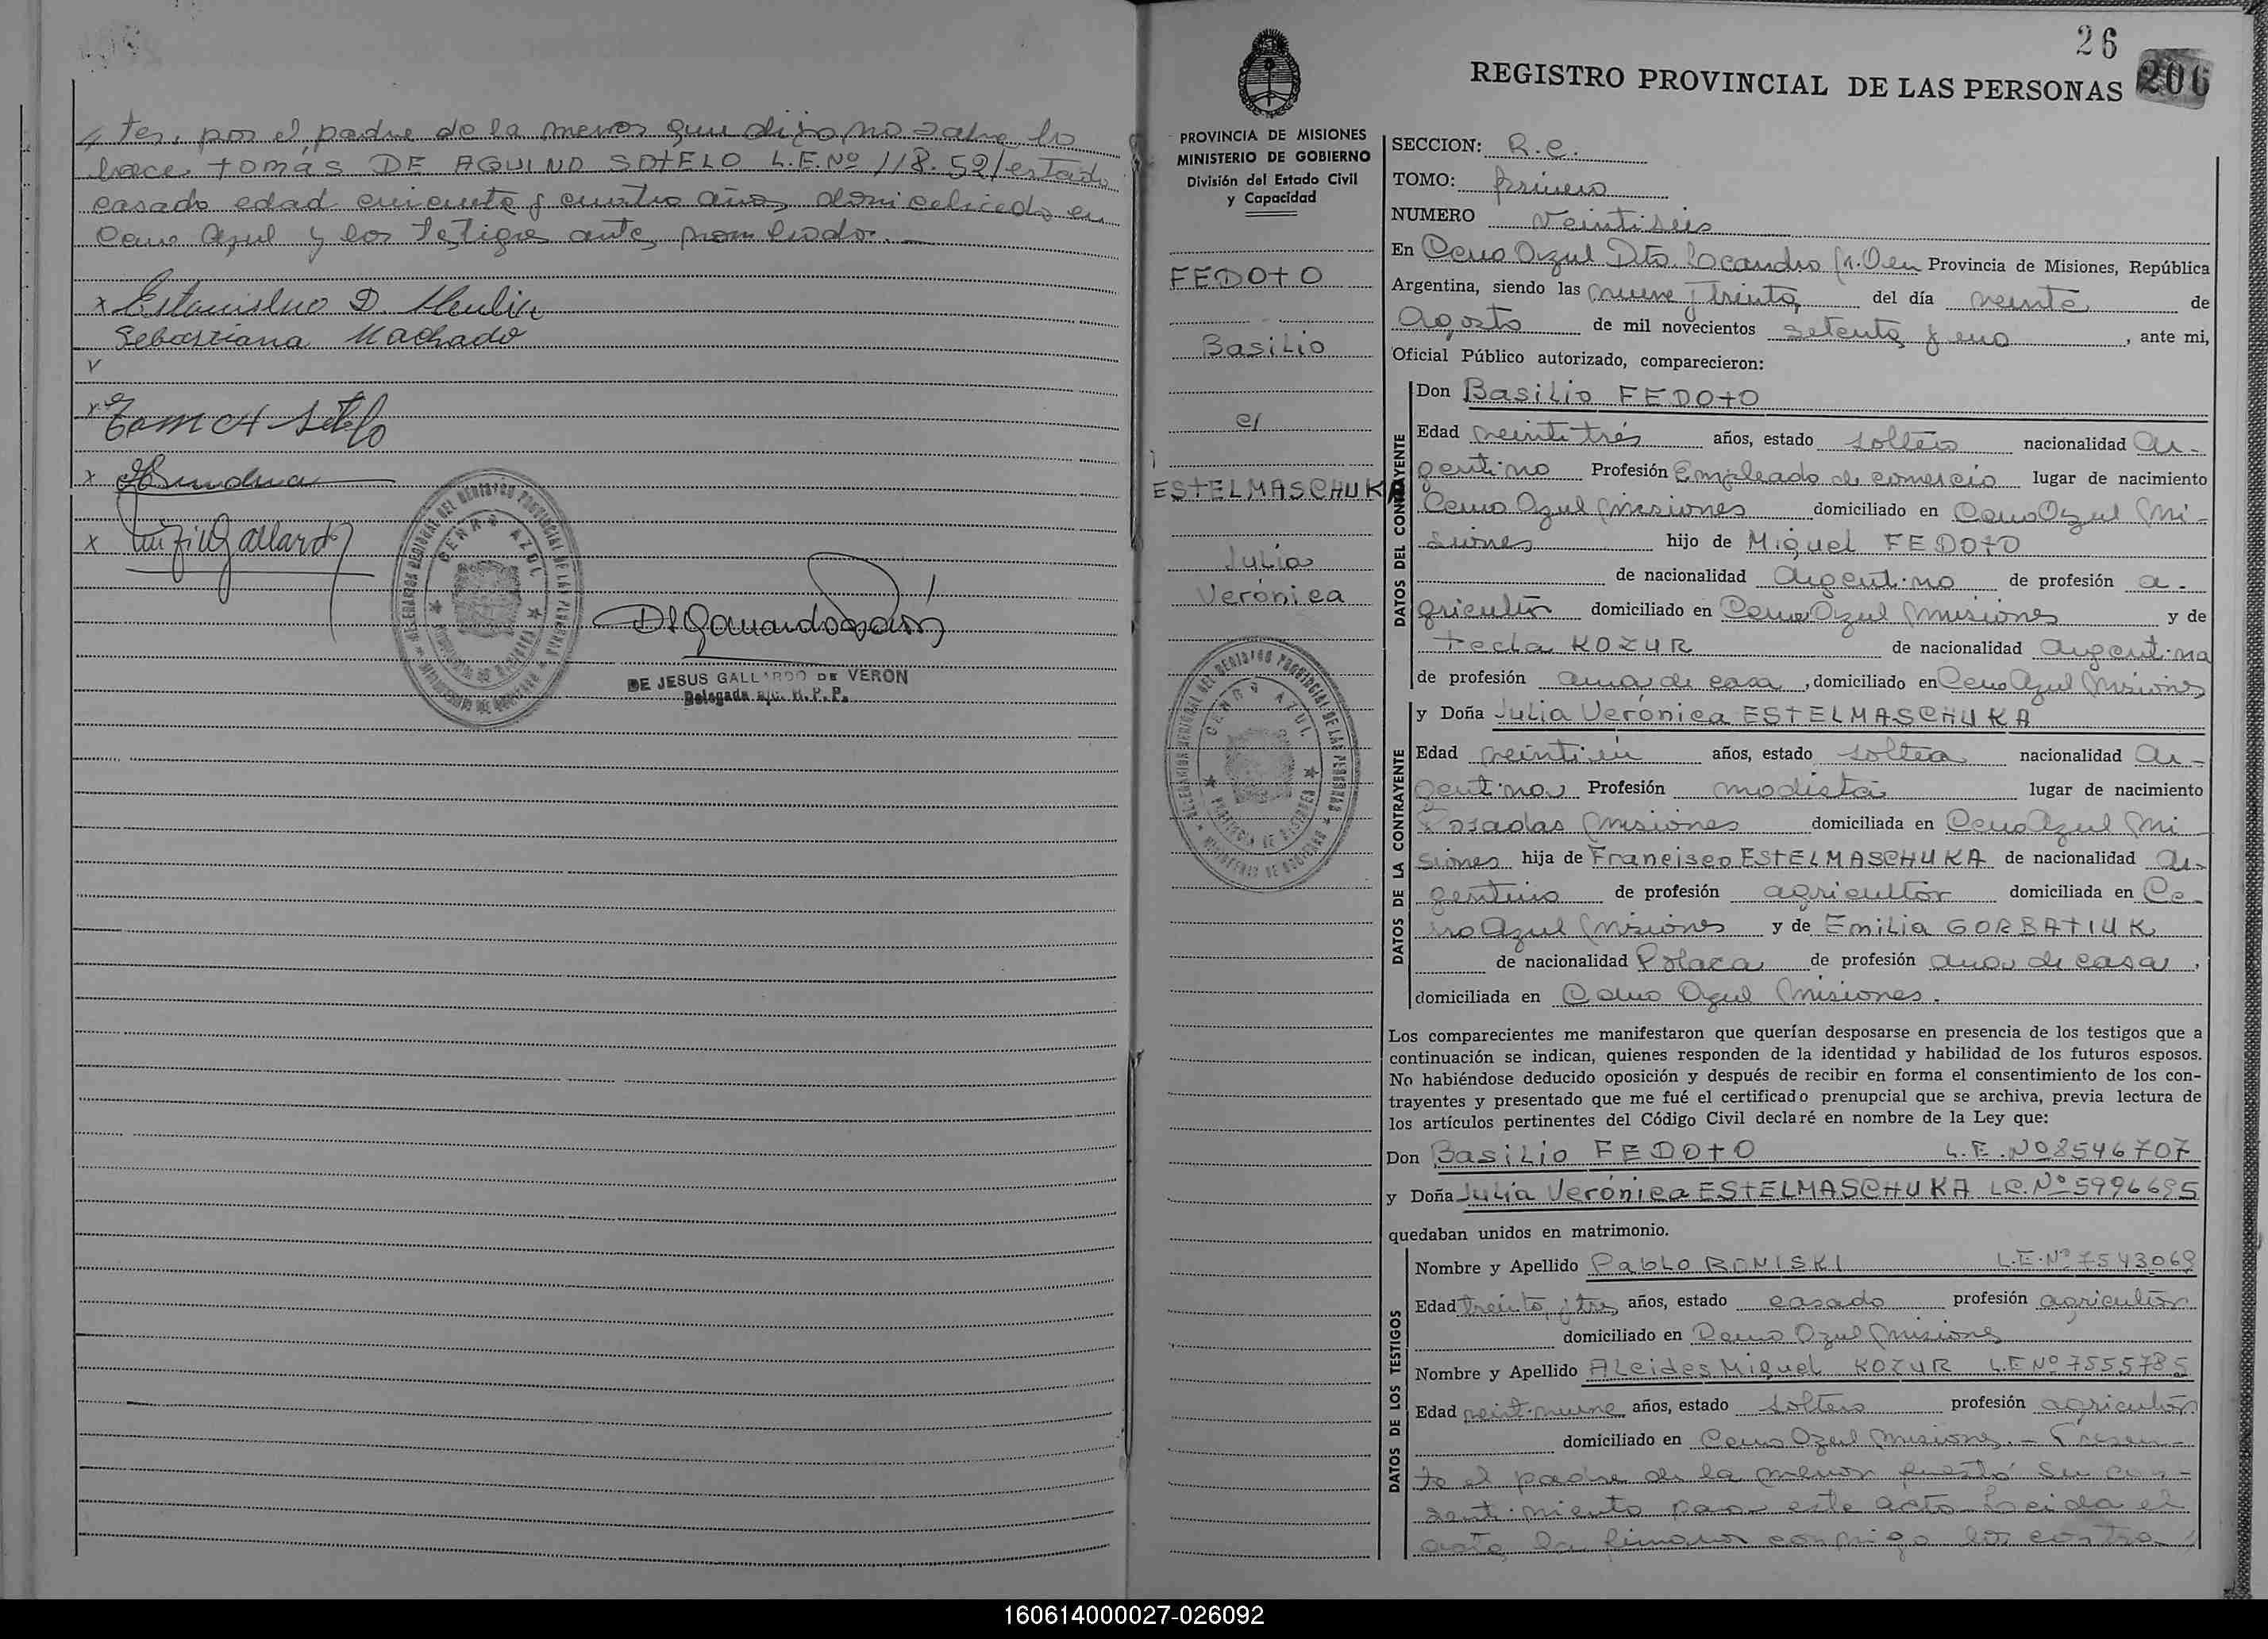 tes, por el padre de la menor que dijo no saber lo
hace TOMAS DE AQUINO SOTELO L.E.Nº 118.521 estado
casado edad cincuenta y cuatro años, domiciliado en
Cerro Azul y los testigos antes nombrados.
x Estanislao D.
Sebastiana Machado
x
x
x
CERRO AZUL
DE JESUS GALLARDO DE VERON
Delegada a/c. R.P.P.
26
206
REGISTRO PROVINCIAL DE LAS PERSONAS
PROVINCIA DE MISIONES
MINISTERIO DE GOBIERNO
División del Estado Civil
y Capacidad
FEDOTO
Basilio
c/
ESTELMASCHUKA
Julia
Verónica
CERRO AZUL
SECCION: R.C.
TOMO: primero
NUMERO veintiseis
En Cerro Azul Dto. Leandro N. Alem Provincia de Misiones, República
Argentina, siendo las nueve y treinta del día veinte de
Agosto de mil novecientos setenta y uno, ante mi,
Oficial Público autorizado, comparecieron:
DATOS DEL CONTRAYENTE
Don Basilio FEDOTO
Edad veintitrés años, estado soltero nacionalidad Ar-
gentino Profesión Empleado de comercio lugar de nacimiento
Cerro Azul Misiones domiciliado en Cerro Azul Mi-
siones hijo de Miguel FEDOTO
de nacionalidad Argentino de profesión a-
gricultor domiciliado en Cerro Azul Misiones y de
Tecla KOZUR de nacionalidad Argentina
de profesión ama de casa, domiciliado en Cerro Azul Misiones
DATOS DE LA CONTRAYENTE
y Doña Julia Verónica ESTELMASCHUKA
Edad veintiún años, estado soltera nacionalidad Ar-
gentina Profesión modista lugar de nacimiento
Posadas Misiones domiciliada en Cerro Azul Mi
siones hija de Francisco ESTELMASCHUKA de nacionalidad Ar-
gentino de profesión agricultor domiciliada en Ce-
rro Azul Misiones y de Emilia GORBATIUK
de nacionalidad Polaca de profesión ama de casa,
domiciliada en Cerro Azul Misiones.
Los comparecientes me manifestaron que querían desposarse en presencia de los testigos que a
continuación se indican, quienes responden de la identidad y habilidad de los futuros esposos.
No habiéndose deducido oposición y después de recibir en forma el consentimiento de los con-
trayentes y presentado que me fué el certificado prenupcial que se archiva, previa lectura de
los artículos pertinentes del Código Civil declaré en nombre de la Ley que:
Don Basilio FEDOTO L.E.Nº 8546707
y Doña Julia Verónica ESTELMASCHUKA LC.Nº 5996695
quedaban unidos en matrimonio.
DATOS DE LOS TESTIGOS
Nombre y Apellido Pablo ROMISKI L.E.Nº 7543069
Edad treinta y tres años, estado casado profesión agricultor
domiciliado en Cerro Azul Misiones
Nombre y Apellido Alcides Miguel KOZUR L.E Nº 7555785
Edad veintinueve años, estado soltero profesión agricultor
domiciliado en Cerro Azul Misiones. - Presen-
te el padre de la menor prestó su con-
sentimiento para este acto Leida el
acta la firman conmigo los contra
160614000027-026092